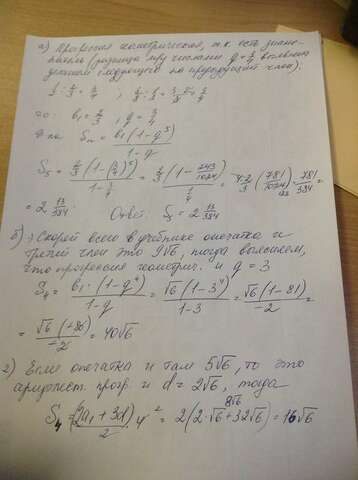 а) Прогрессия геометрическая, т.к. есть знаменатель (разница при числами q = 3/4 
делением следующего на предыдущий член).
1/2 : 2/3 = 3/4 ; 3/8 : 1/2 = 3·2/8 = 3/4
то: b₁ = 2/3 ; q = 3/4
Ф-ла Sₙ = b₁(1 - q⁵)/(1 - q)
S₅ = 2/3 (1 - (3/4)⁵)/(1 - 3/4) = 2/3 (1 - 243/1024)/(1/4) = 4·2/3 (781/1024) = 781/384 =
= 2 13/384   Ответ: S₅ = 2 13/384
б) → Скорей всего в учебнике опечатка и
третий член это 9√6, тогда выясняем,
что прогрессия геометрич. и q = 3
S₄ = b₁·(1 - q⁴)/(1 - q) = √6(1 - 3⁴)/(1 - 3) = √6(1 - 81)/-2 =
= √6(-80)/-2 = 40√6
2) Если опечатка и там 5√6, то это
арифмет. прогр. и d = 2√6, тогда
S₄ = (2a₁ + 3d)/2 · 4 ² = 2(2·√6 + 3·2√6) = 16√6
8√6